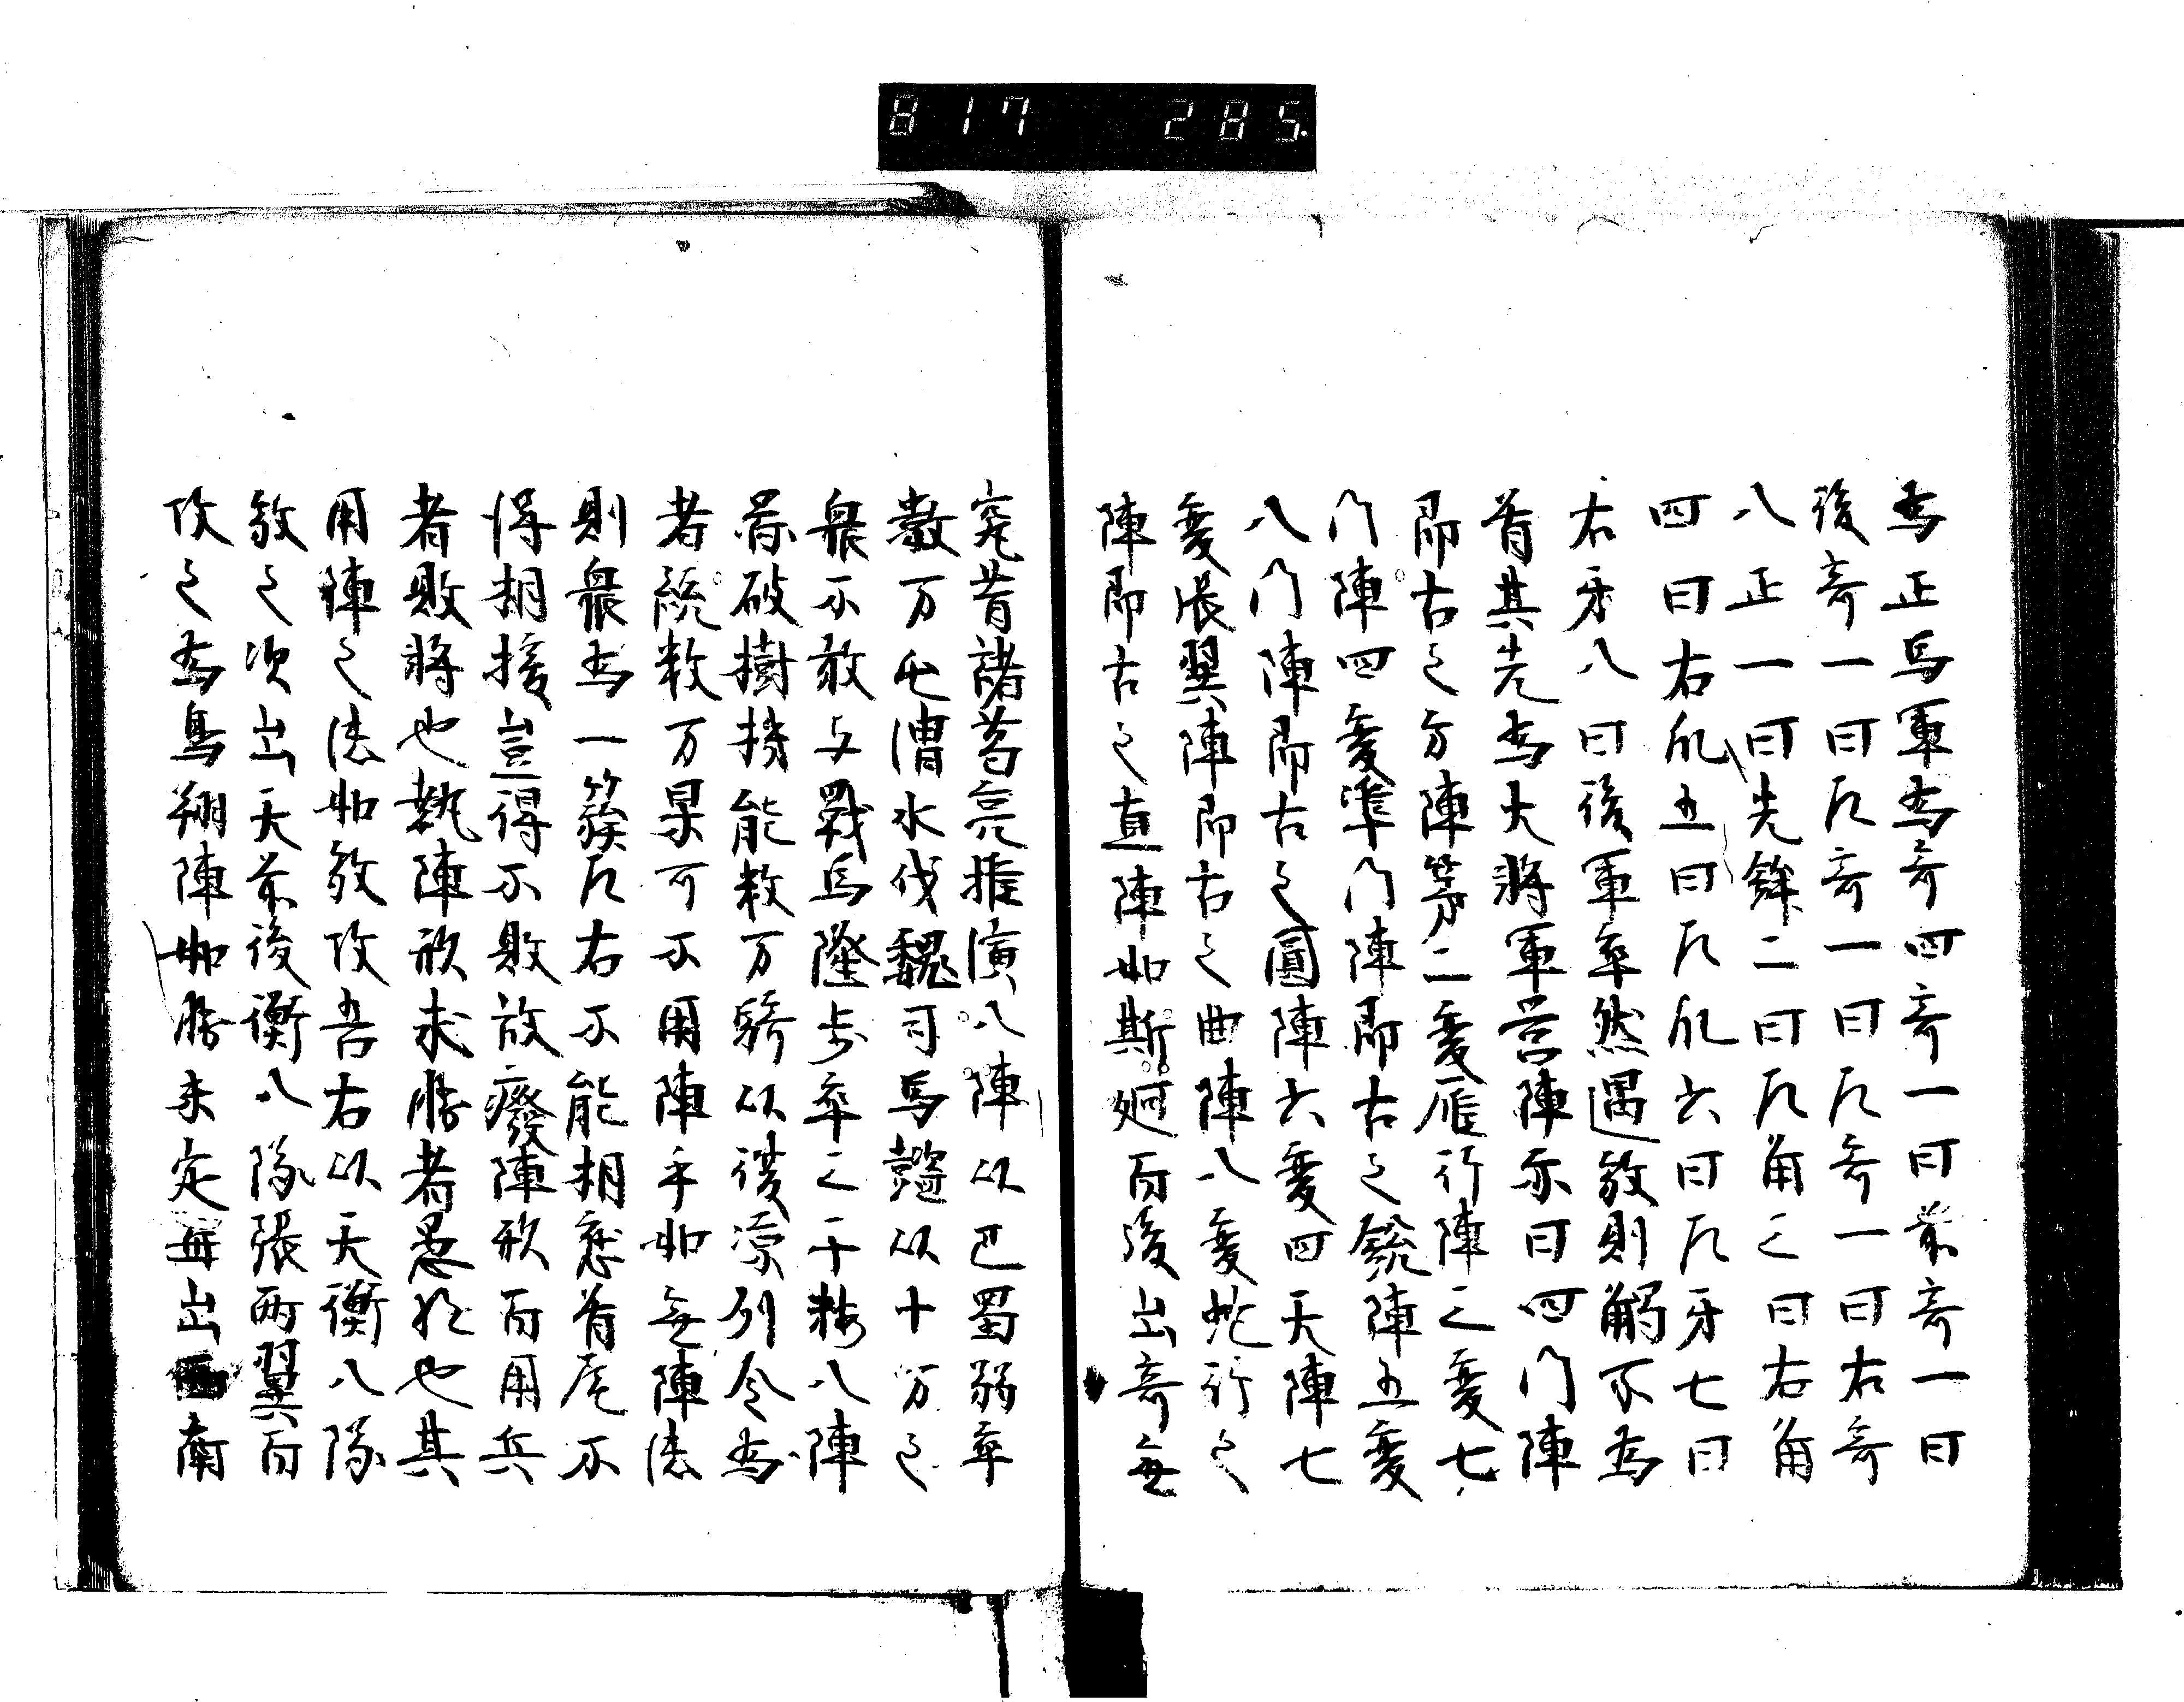 817 285.
為正馬軍為奇四奇一曰前奇一曰
後奇一曰左奇一曰左奇一曰右奇
八正一曰先鋒二曰左角三曰右角
四曰右爪五曰左爪六曰左牙七曰
右牙八曰後軍卒然遇敌則觸不為
首其先為大將軍营陣亦曰四门陣
即古之方陣第二変雁行陣三変七
门陣四変準门陣即古之銳陣五変
八门陣即古之圓陣六変四天陣七
変張翼陣即古之曲陣八変蛇行之
陣即古之直陣如斯廻而後出奇無
窕昔諸葛亮推演八陣以巴蜀弱卒
数万屯渭水伐魏司馬懿以十万之
衆不敢与戰馬隆步卒三千教八陣
破樹機能数万騎以復凉列令為
者統数万眾可不用陣乎如無陣法
則衆為一簇左右不能相應首尾不
得相援豈得不敗故廢陣形而用兵
者敗將也執陣形求勝者愚将也其
用陣之法如敌攻吾右以天衡八隊
敌之次出天前後衡八隊張兩翼而
攻之為鳥翔陣如勝未定每出南